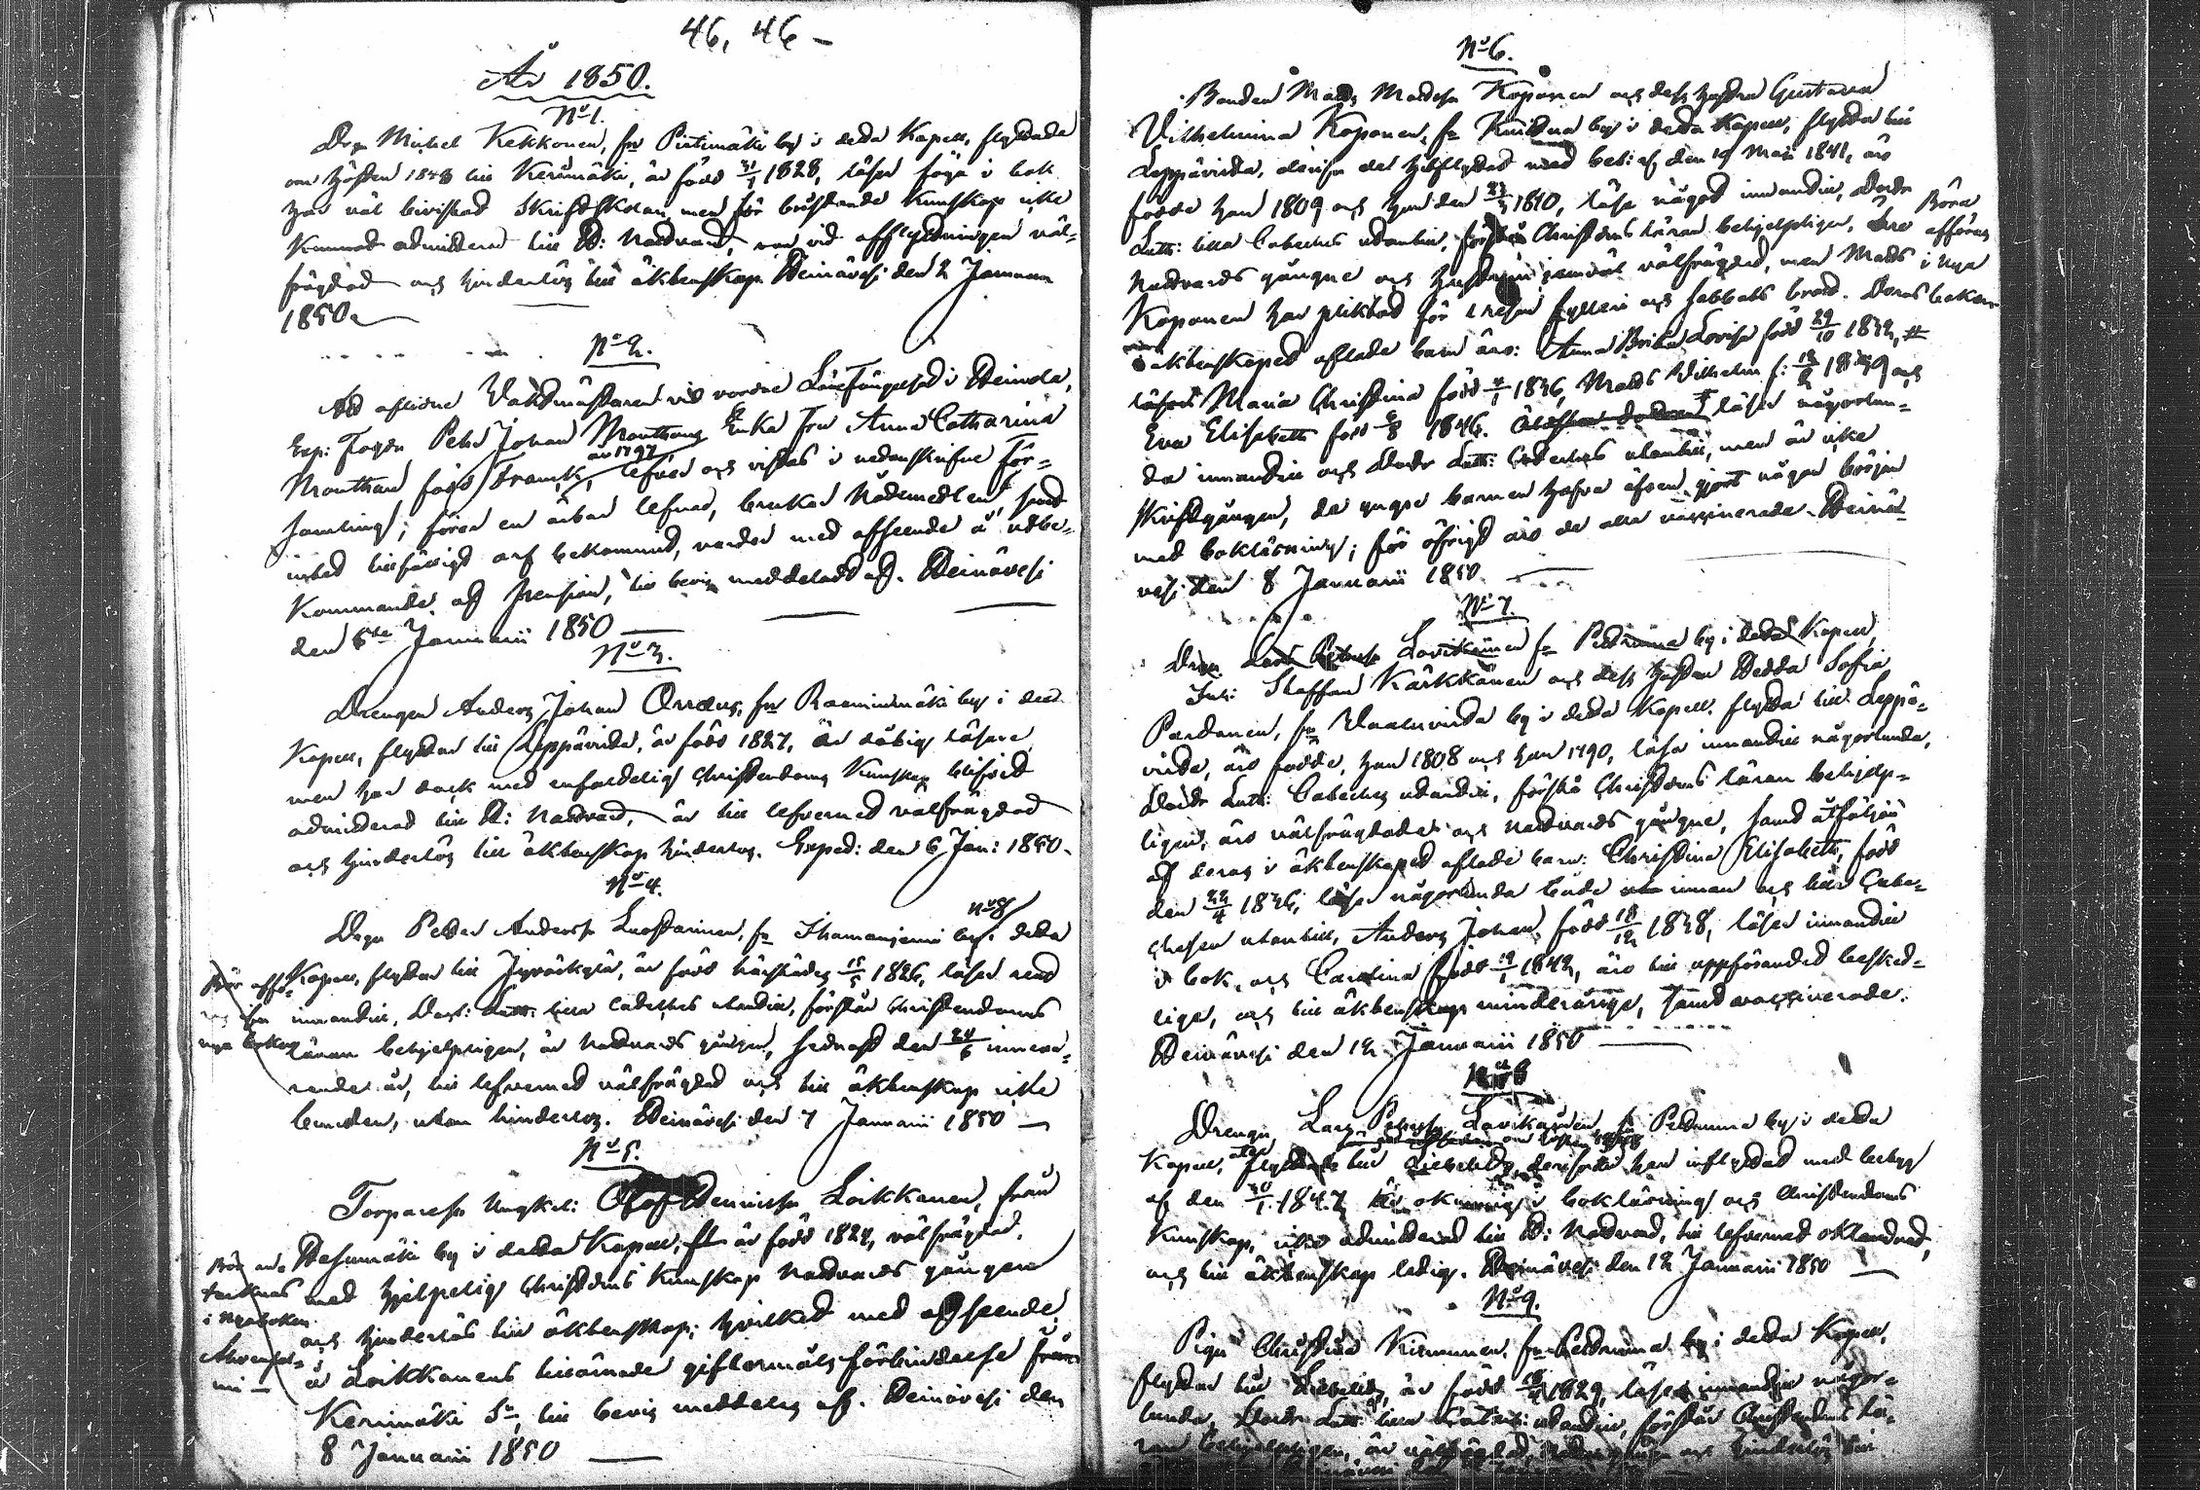 46, 46 –
År 1850.
No 1.
Drgn Michel Kekkonen, frn Putimäki by i detta Kapell, flyttade
om hösten 1848 till Kerimäki, är född 21/1 1828, läser föga i bok
har väl bivistat Skriftskolan, men för bristande Kunskap icke
kunnat admitteras till H: Nattvard, var vid afflyttningen väl-
frägdad och hinderlös till äktenskap. Heinävesi den 2 Januarii
1850.
No 2.
Att aflidne Vaktmästaren vid vordne LäneFängelset i Heinola,
Exp: Fogden Petter Johan Monthans Enka Fru Anna Catharina
Monthan född Franck, lefver och vistas i nedanskrifne För-
år 1797
samling; förer en ärbar lefnad, brukar Nådemedlen samt
intet tillfälligt arf bekommit, varder med afseende å utbe-
kommande af Pension, till bevis meddeladt af. Heinävesi
den 5te Januarii 1850
No 3.
Drengen Anders Johan Orraeus, frn Raminmäki by i detta
Kapell, flyttar till Leppävirta, är född 1827, är däligt läsare
men har dock med enfaldelig Christendoms Kunskap blifvit
admitterad till H: Nattvard, är till lefvernet välfrägdad
och hinderlös till äktenskap hinderlös. Exped: den 6 Jan: 1850.
No 4.
No 8
Drgn Petter Andersn Luostarinen, fr Ihamaniemi by i detta
Kapell, flyttar till Jyväskylä, är född härstädes 15/5 1826, läser rent
innantill, Doct: Luth: lilla Cateches utantill, förstår Christendoms
läran behjelpligen, är Nattvards gången, sednast den 24/6 inneva-
rande år, till lefvernet välfrägdad och till äktenskap icke
bunden, utan hinderlös. Heinävesi den 7 Januarii 1850
Bör affö-
ras i
nya boken
No 5.
Torparesn Ungkrl: Olof Henricsn Loikkanen, från
Hasumäki by i detta Kapell, är född 1824, välfrägdad,
med hjelpelig Christdms Kunskap Nattvards gången
och hinderlös till äktenskap; hvilket med afseende
å Loikkanens tillärnade giftermåls förbindelse i
Kerimäki Sn, till bevis meddelas af. Heinävesi den
8 Januarii 1850
Bör an-
tecknas
i Nya boken
No 6.
Bonden Matts Mattsn Koponen och dess hustru Gustava
Vilhelmina Koponen, fr by i detta Kapell, flytta till
Leppävirta, derifrn det hitflyttat med bet: af den 19 Maii 1841, äro
födde han 1809 och hon den 23/3 1810, läsa något innantill, Doctr
Luth: lilla Cateches utantill, förstå Christdoms läran behjelpligen, äro
Nattvards gångne och hustrun jemväl välfrägdad, men Matts
Koponen har pliktat för 1 resan fylleri och sabbats brott. Deras
i äktenskapet aflade barn äro: Anna Brita Lovisa född 29/10 1832, #
Maria Christina född 4/1 1836, Matts Vilhelm f: 12/2 1839 och
Eva Elisabeth född 6/8 1846. # läser någorlun-
da innantill och Doctr Luth: Cateches utantill, men är icke
skriftgången, de yngre barnen hafva äfven gjort någon början
med bokläsning; för öfrigt äro de alla vaccinerade. Heinä-
vesi den 8 Januarii 1850
Böra
afföras
i nya
boken
No 7.
Drgn Lars Petersn Lavikainen fr Petruma by i detta Kapell,
Inh: Staffan Kärkkäinen och dess hustru Hedda Sofia
Pardanen, frn Vaaluvirta by i detta Kapell, flytta till Leppä-
virta, äro födde, han 1808 och hon 1790, läsa innantill någorlunda,
Doctr Luth: Cateches utantill, förstå Christdoms läran behjelp-
ligen, äro välfrägdade och Nattvards gångne, samt åtföljas
af deras i äktenskapet aflade barn: Christina Elisabeth, född
den 22/4 1836, läser någorlunda både innan och till Cate-
chesen utantill, Anders Johan, född 18/12 1838, läser innantill
i bok, och Carolina född 19/1 1842, äro till uppförandet besked-
lige, och till äktenskap minderårige, samt vaccinerade.
Heinävesi den 12 Januarii 1850
No 8
Drengen Lars Petersn Lavikainen, frn Petruma by i detta
Kapell, flyttade till Libelits, derifrån han inflyttat med betyg
af den 30/1 1847, är okunnig i bokläsning och Christendoms
Kunskap, icke admitterad till H: Nattvard, till lefvernet oklandrad,
och till äktenskap ledig. Heinävesi den 12 Januarii 1850
No 9.
Pigan Christina Kinnunen, frn Petruma by i detta Kapell,
flyttar till Libelits, är född 1829, läser innantill någor-
lunda, Doctr Luth: lilla Catech: utantill, förstår Christendoms lä-
ran behjelpligen, är välfrägdad, och hinderlös till